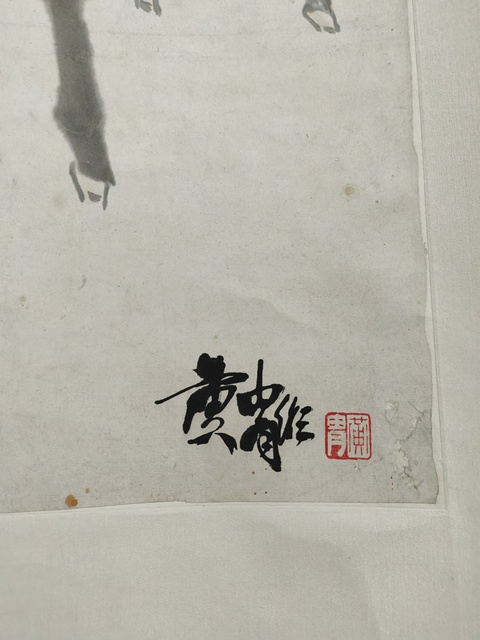 黄胄作
黄胄